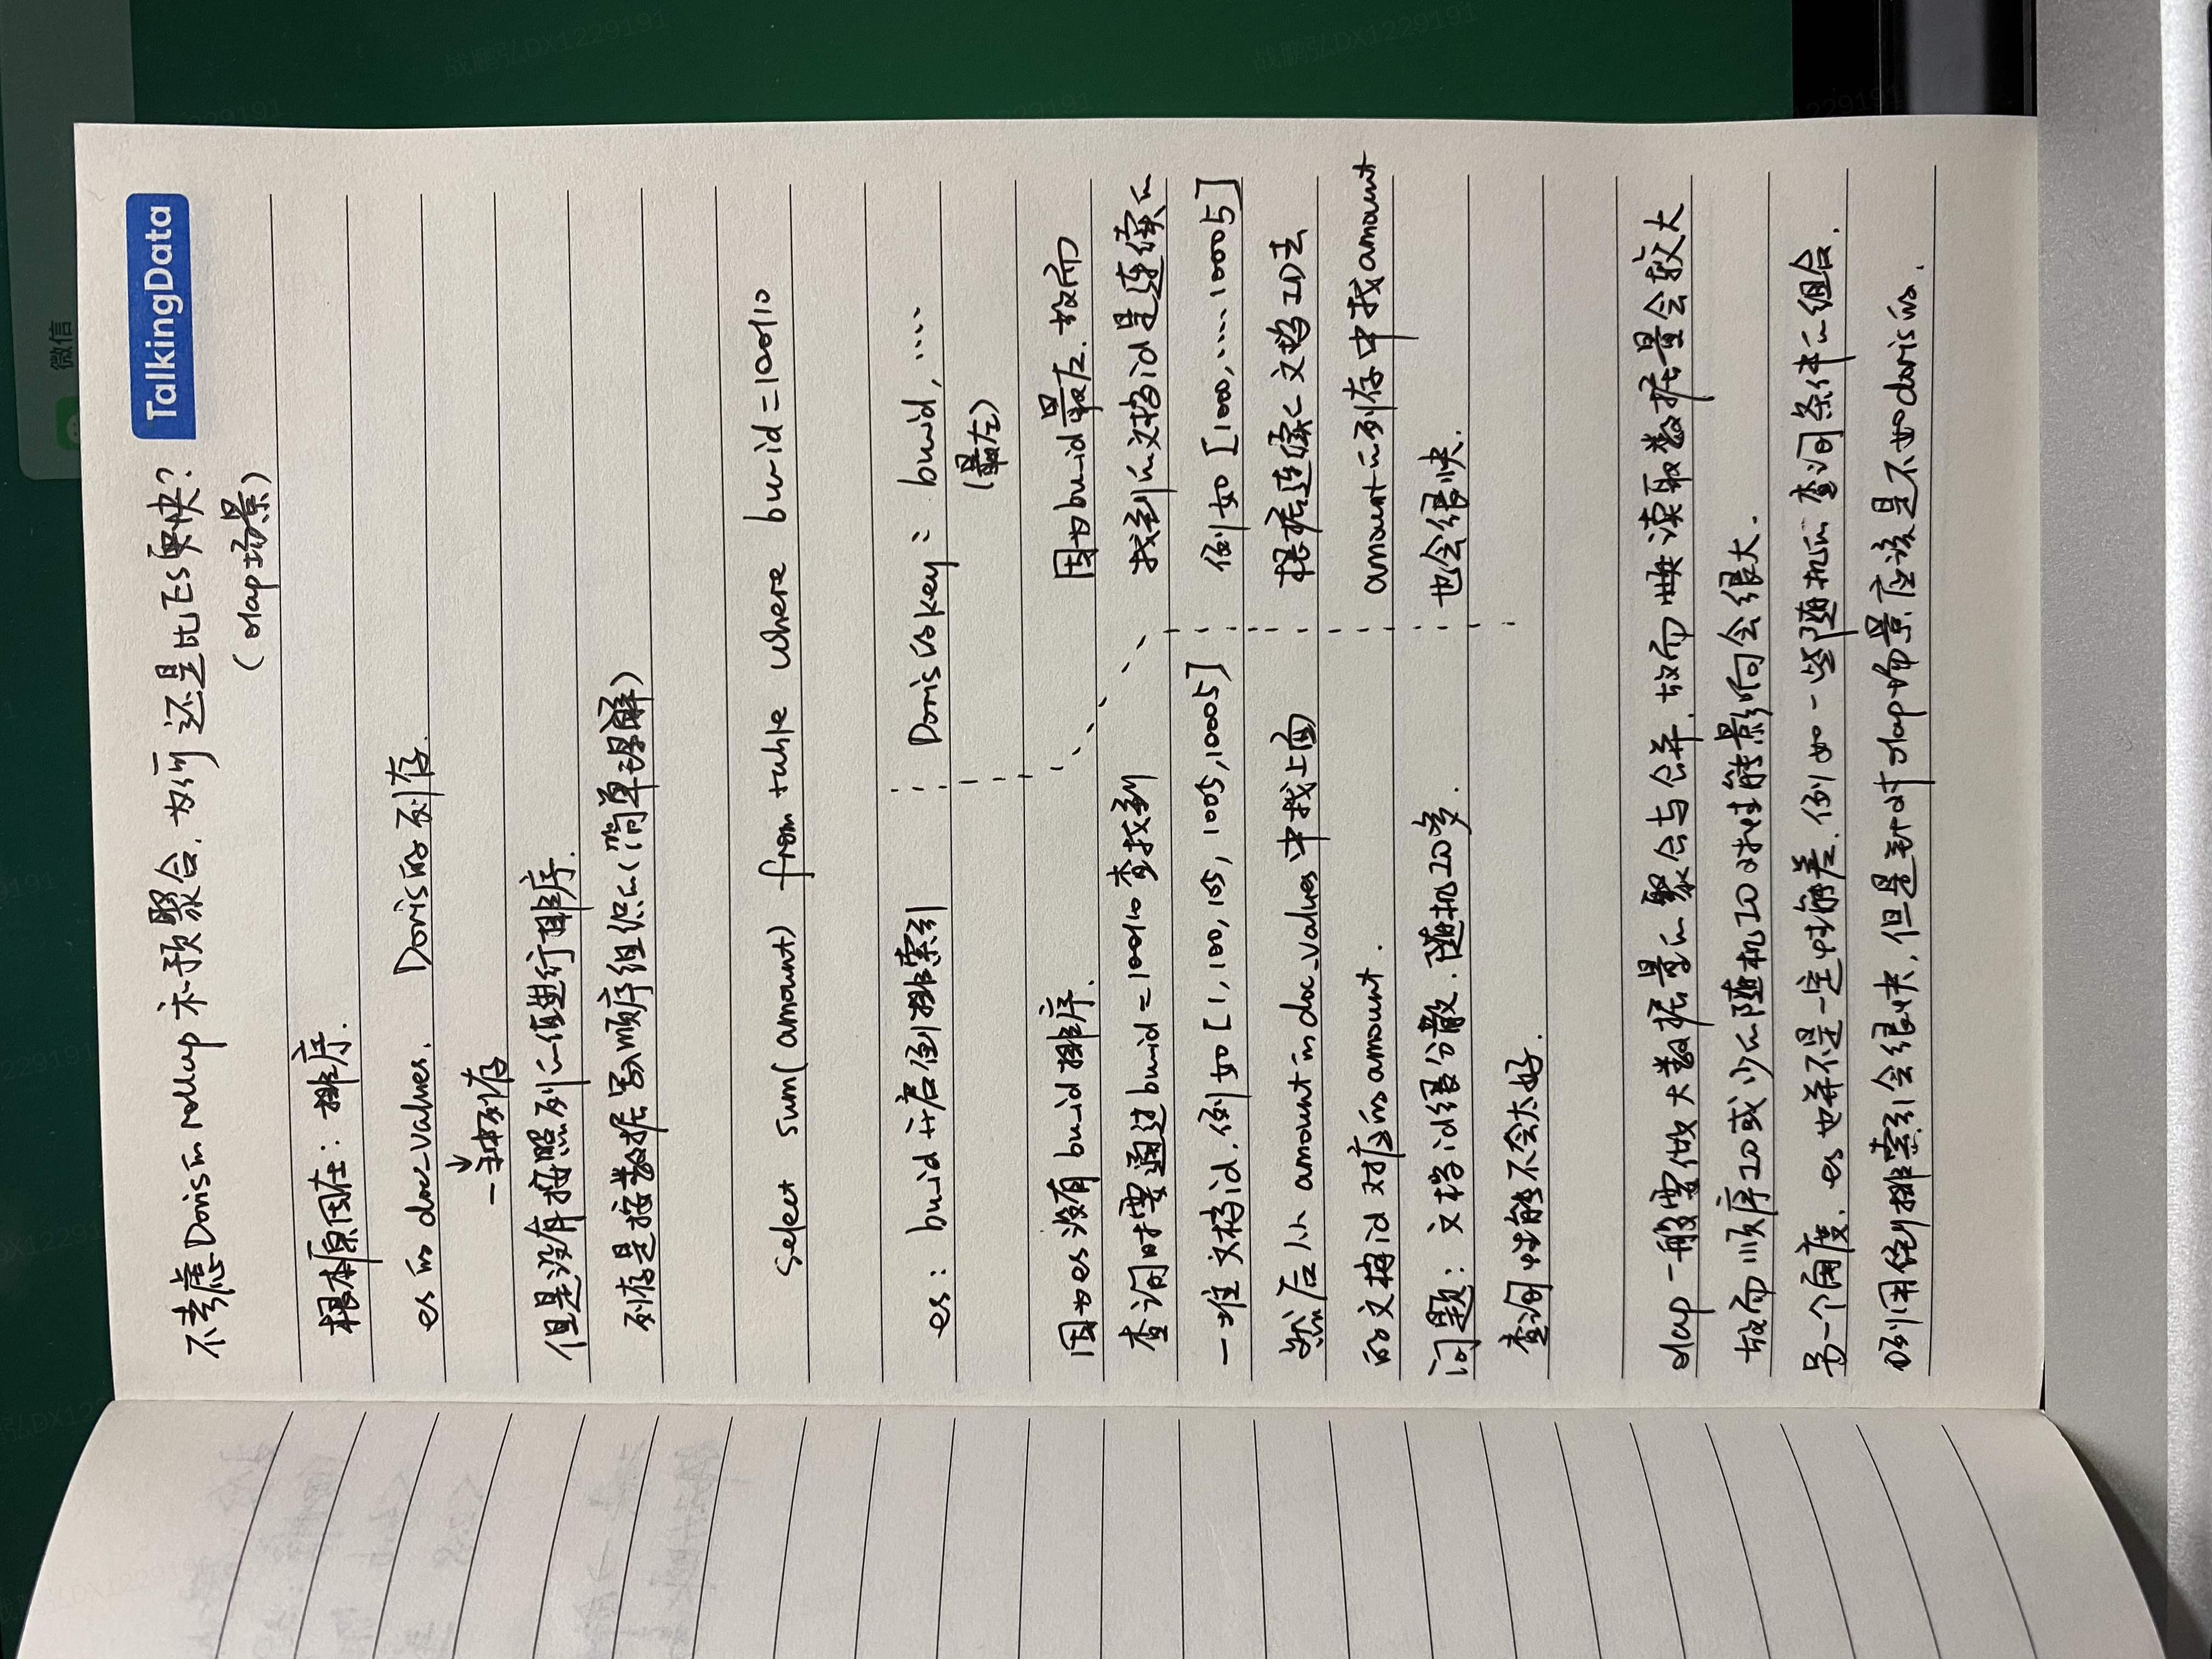 微信
TalkingData
不考虑Doris的rollup和预聚合,为何还是比ES更快?
(olap场景)
根本原因在:排序.
es的doc_values. Doris的列存.
↓
一种列存
但是没有按照列的值进行排序.
列存是按数据写入顺序组织的(简单理解)
select sum(amount) from table where bu_id=100110
es: bu_id开启倒排索引
Doris的key: bu_id, ....
(最左)
因为es没有bu_id排序.
查询时要通过bu_id=100110查找到
一堆文档id.例如[1,100,105,1005,10005]
然后从amount的doc_values中找上面
的文档id对应的amount.
问题:文档id很分散.随机IO多.
查询性能不会太好.
因为bu_id最左.故而
找到的文档id是连续的
例如[1000,....10005]
根据连续的文档ID去
amount的列存中找amount
也会很快.
olap一般要做大数据量的聚合与合并.故而读取数据量会较大
故而顺序IO或少的随机IO对性能影响会很大.
另一个角度.es也并不是一定性能差.例如一些随机的查询条件的组合.
利用倒排索引会很快,但是针对olap场景应该是不如doris的.